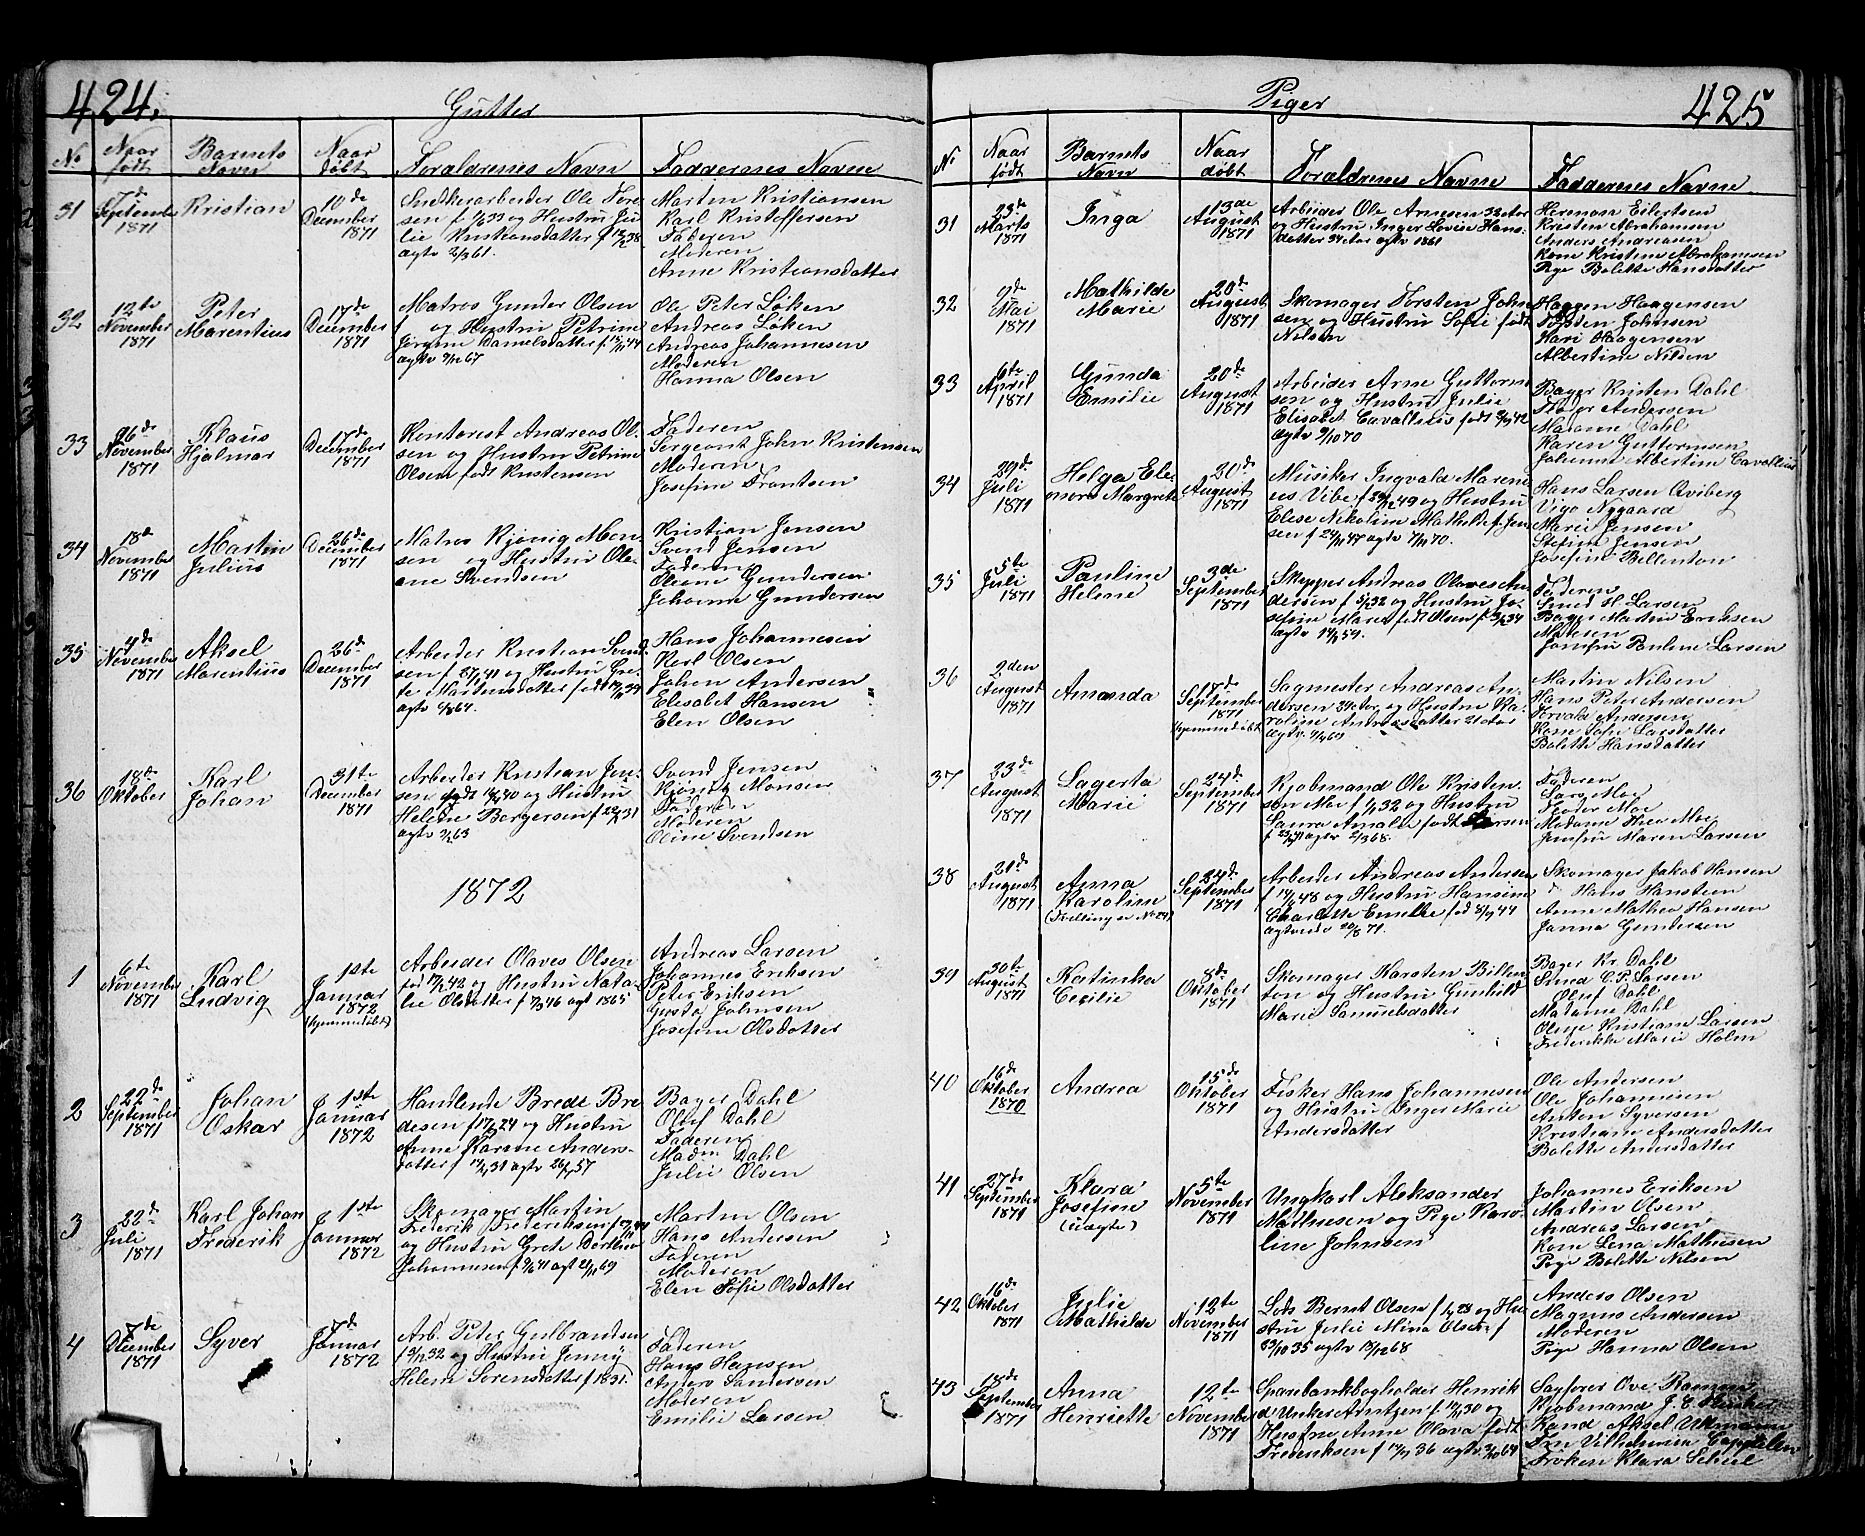 424.
Gutter
No
Naar født
Barnets Navn
Naar døbt
Foraldrenes Navn
Faddernes Navne
31
7de September 1871
Kristian
10de December 1871
Snedkerarbeider Ole Tore-
sen og Hustru Ju-
lie Kristiansdatter
Martin Kristiansen
Karl Kristoffersen
Faderen
Moderen
Anne Kristiansdatter
32
12te November 1871
Peter
Marentius
17de December 1871
Matros Gunder Olsen
og Hustru Petrine
Jørgine Danielsdatter
Ole Peter Løken
Andreas Løken
Andreas Johannesen
Moderen
Hanna Olsen
33
26de November 1871
Klaus
Hjalmar
17de December 1871
Kontorist Andreas Ol-
sen og Hustru Petrine
Olsen født Kristensen
Faderen
Sergeant John Kristensen
Moderen
Josefine Frantsen
34
18de November 1871
Martin
Julius
26de December 1871
Matros Kjønig Mon-
sen og Hustru Ole-
ane Svendsen
Kristian Jensen
Svend Jensen
Faderen
Oleane Gundersen
Johanne Gundersen
35
4de November 1871
Aksel
Marentius
26de December 1871
Arbeider Kristian Svend-
sen f 27/1 41 og Hustru Gre-
te Martinsdatter født
Hans Johannesen
Karl Olsen
Johan Andersen
Elisabet Hansen
Elen Olsen
36
18de Oktober
Karl
Johan
31te December 1871
Arbeider Kristian Jen-
sen og Hustru
Helene Børgersen
Svend Jensen
Kjønig Monsen
Faderen
Moderen
Oline Svendsen
1872
1
6te November 1871
Karl
Ludvig
1ste Januar 1872
(hjemmedøbt)
Arbeider Olaves Olsen
og Hustru Nata-
lie Olsdatter f 7/3 46 agt 1865
Andreas Larsen
Johannes Eriksen
Peter Eriksen
Gusta Johnsen
Josefine Olsdatter
2
22de September 1871
Johan
Oskar
1ste Januar 1872
Handlende Brede Bre-
desen og Hustru
Anne Karine Anders-
datter
Bager Dahl
Oluf Dahl
Faderen
Madm Dahl
Julie Olsen
3
22de Juli 1871
Karl Johan
Frederik
1ste Januar 1872
Skomager Martin
Frederik Frederiksen
og Hustru Grete Dorthea
Johannesen
Martin Olsen
Hans Andersen
Faderen
Moderen
Elen Sofie Olsdatter
4
7de December 1871
Syver
7de Januar 1872
Arb. Peter Gulbrandsen
og Hustru Jenny
Helene Sørensdatter f 1831.
Faderen
Hans Hansen
Anders Sandersen
Moderen
Emilie Larsen
425
Piger
No
Naar født
Barnets Navn
Naar døbt
Foraldrenes Navne
Faddernes Navne
31
23de Marts 1871
Inga
13de August 1871
Arbeider Ole Arnesen 32 Aar
og Hustru Inger Lovise Hans-
datter 34 Aar agtv 1861
Herman Eilertsen
Kristen Abrahamsen
Anders Andreasen
Kone Kristine Abrahamsen
Pige Bolette Hansdatter
32
9de Mai 1871
Mathilde
Marie
20de August 1871
Skomager Torsten John-
sen og Hustru Sofie født
Nilsen
Haagen Haagensen
Tosten Johnsen
Kari Haagensen
Albertine Nilsen
33
6te April 1871
Gunda
Emilie
20de August 1871
Arbeider Arne Guttorm-
sen og Hustru Julie
Elisabet Cavallius
agtv 9/10 70
Bager Kristen Dahl
Peder Andersen
Madame Dahl
Karen Guttormsen
Johanne Albertine Cavallius
34
29de Juli 1871
Helga Ele-
nore Margrete
20de August 1871
Musiker Ingvald Mareni-
us Vibe og Hustru
Elise Nikoline Mathilde f. Jen-
sen f 24/11 47 agtv 7/11 70.
Hans Larsen Qviberg
Vigo Nygaard
Marie Jensen
Stefine Jensen
Josefine Billenton
35
5te Juli 1871
Pauline
Helene
3de September 1871
Skipper Andreas Olaves An-
dersen f 5/1 32 og Hustru Jo-
sefine Maren født Olsen
Faderen
Smed H. Larsen
Bager Martin Eriksen
Moderen
Jomfru Pauline Larsen
36
2den August 1871
Amanda
17de September 1871
hjemmedøbt
Sagmester Andreas An-
dersen 24 Aar og Hustru Ka-
roline Andreasdatter 21 Aar
Martin Nilsen
Hans Peter Andersen
Torvald Andersen
Kone Sofie Larsdatter
Bolette Hansdatter
37
23de August 1871
Lagerta
Marie
24de September 1871
Kjøbmand Ole Kristen-
sen Moe og Hustru
Laura Amalie født Larsen
Faderen
Lars Moe
Peder Moe
Madame Thea Moe
Jomfru Maren Larsen
38
21de August 1871
Anna
Karoline
(Tvilling av No 29)
24de September 1871
Arbeider Andreas Andersen
og Hustru Hansine
Charlotte Emilie fød 8/7 44
Skomager Jakob Hansen
Hans Hansteen
Anne Mathea Hansen
Janna Gundersen
39
30te August 1871
Katinka
Cecilie
8de Oktober 1871
Skomager Karsten Billen-
ton og Hustru Gunhild
Marie Samuelsdatter
Bager Kr. Dahl
Smed C. P. Larsen
Oluf Dahl
Madame Dahl
Oline Kristiane Larsen
Frederikke Marie Holm
40
16de Oktober 1870
Andrea
15de Oktober 1871
Fisker Hans Johannesen
og Hustru Inger Marie
Andersdatter
Ole Andersen
Ole Johannesen
Anton Syversen
Kristiane Andersdatter
Bolette Andersdatter
41
27de September 1871
Klara
Josefine
(uægte)
5te November 1871
Ungkarl Aleksander
Mathiesen og Pige Karo-
line Johnsen
Johannes Eriksen
Martin Olsen
Andreas Larsen
Kone Lena Mathiesen
Pige Bolette Nilsen
42
16de Oktober 1871
Julie
Mathilde
12te November 1871
Lods Bernt Olsen og Hu-
stru Julie Mina Olsen f
23/10 35 agtv 13/12 68
Anders Olsen
Magnus Andersen
Moderen
Pige Hanna Olsen
43
18de September 1871
Anna
Henriette
12te November 1871
Sparebankbogholder Henrik
d'Unker Arntzen og
Husfru Anne Olava født
Frederiksen
Sagfører Ove
Kjøbmand J. C.
Kand Aksel
Fru Vilhelmine Cappelen
Frøken Klara Scheel